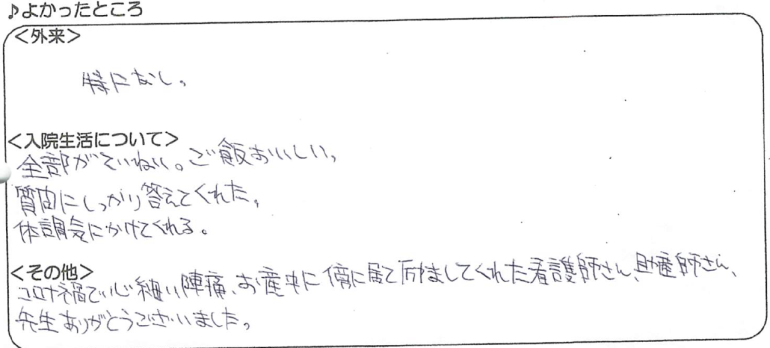 ♪よかったところ
<外来>
特になし。
<入院生活について>
全部がていねい。ご飯おいしい。
質問にしっかり答えてくれた。
体調気にかけてくれる。
<その他>
コロナ禍で心細い陣痛、お産中に傍に居て励ましてくれた看護師さん、助産師さん、
先生ありがとうございました。